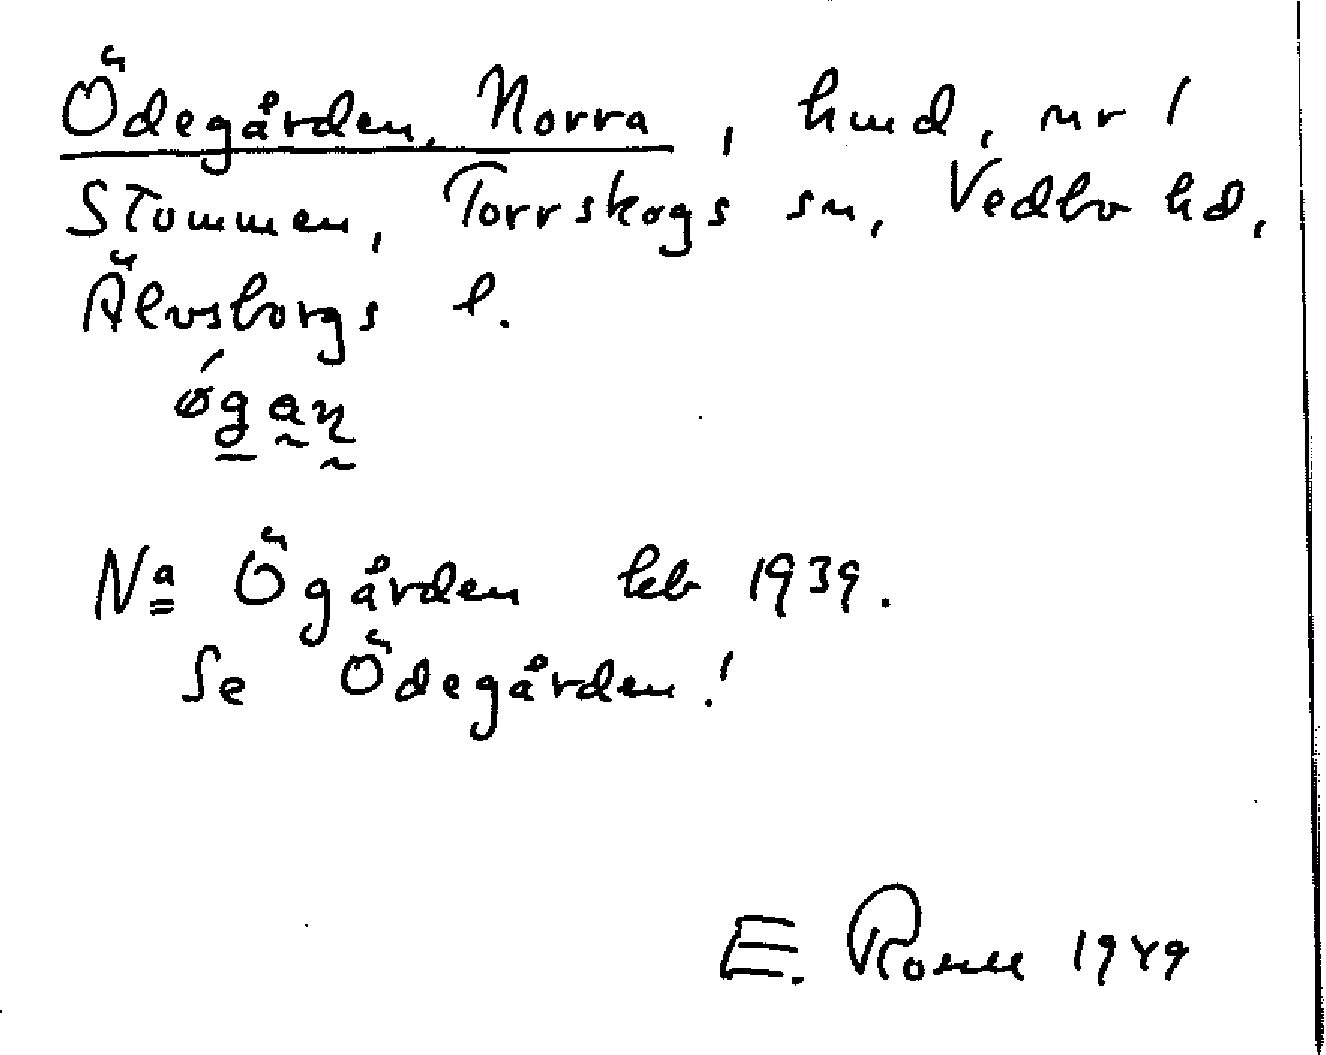 Ödegården, Norra, hmd, nr 1
Stommen, Torrskogs sn, Vedbo hd,
Älvsborgs l.
ǿgan
Nª Ögården kb 1939.
Se Ödegården!
E. 1949